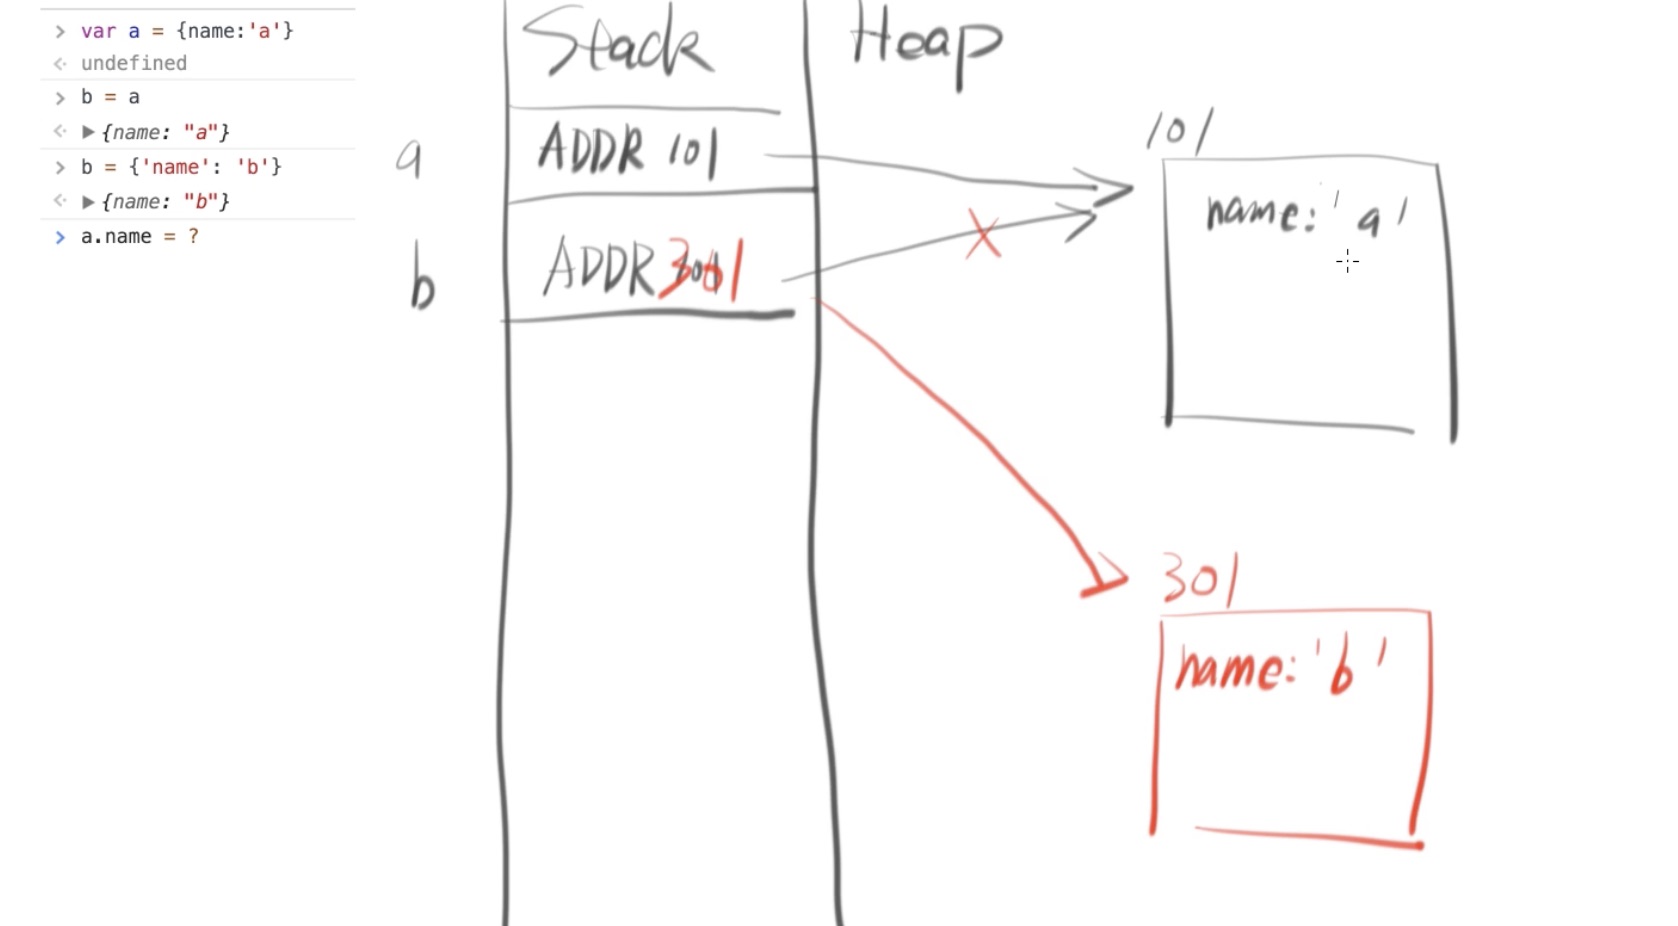 > var a = {name:'a'}
<· undefined
> b = a
<· ▶ {name: "a"}
> b = {'name': 'b'}
<· ▶ {name: "b"}
> a.name = ?
Stack
Heap
a
ADDR 101
b
ADDR 301
101
name: 'a'
301
name: 'b'